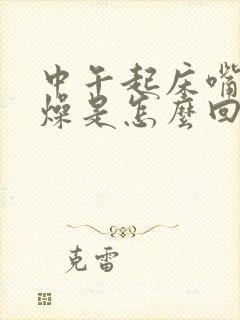 中午起床嘴
燥是怎麼回
克雷